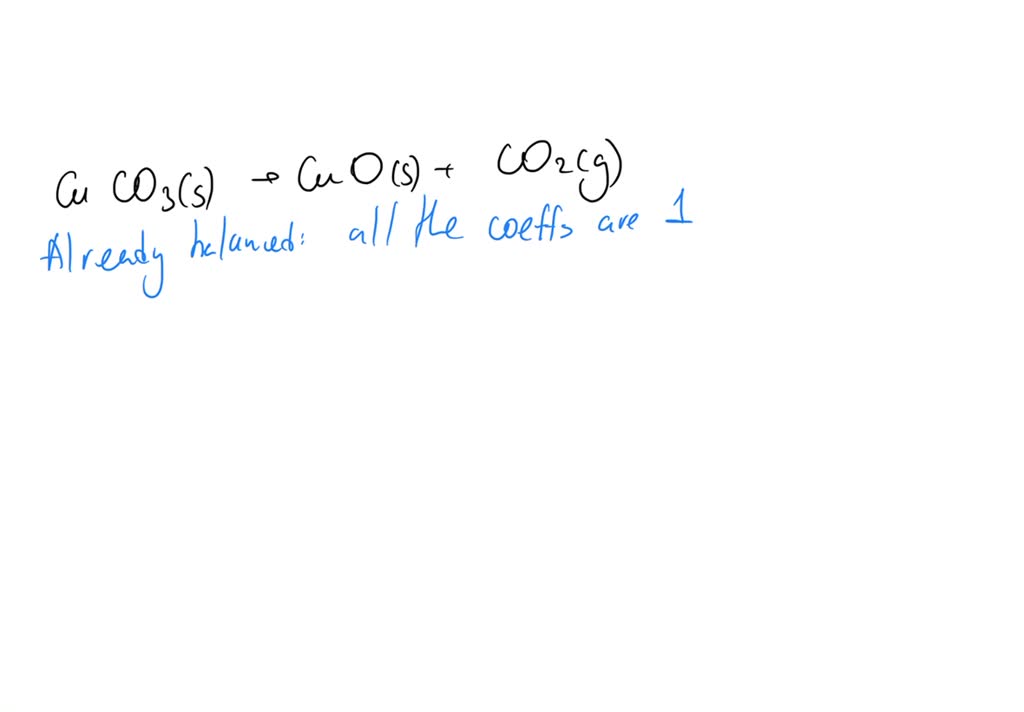 CuCO₃(s) → CuO(s) + CO₂(g)
Already balanced: all the coeffs are 1